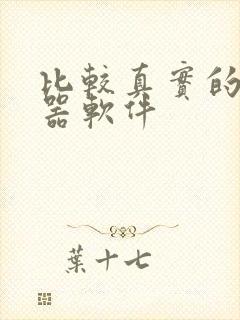 比較真實的
器軟件
葉十七